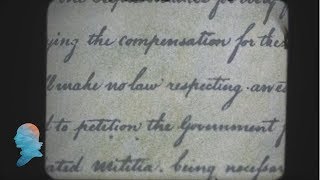 ying the compensation for the
make no law respecting an es
to petition the Government f
ated militia, being necessar